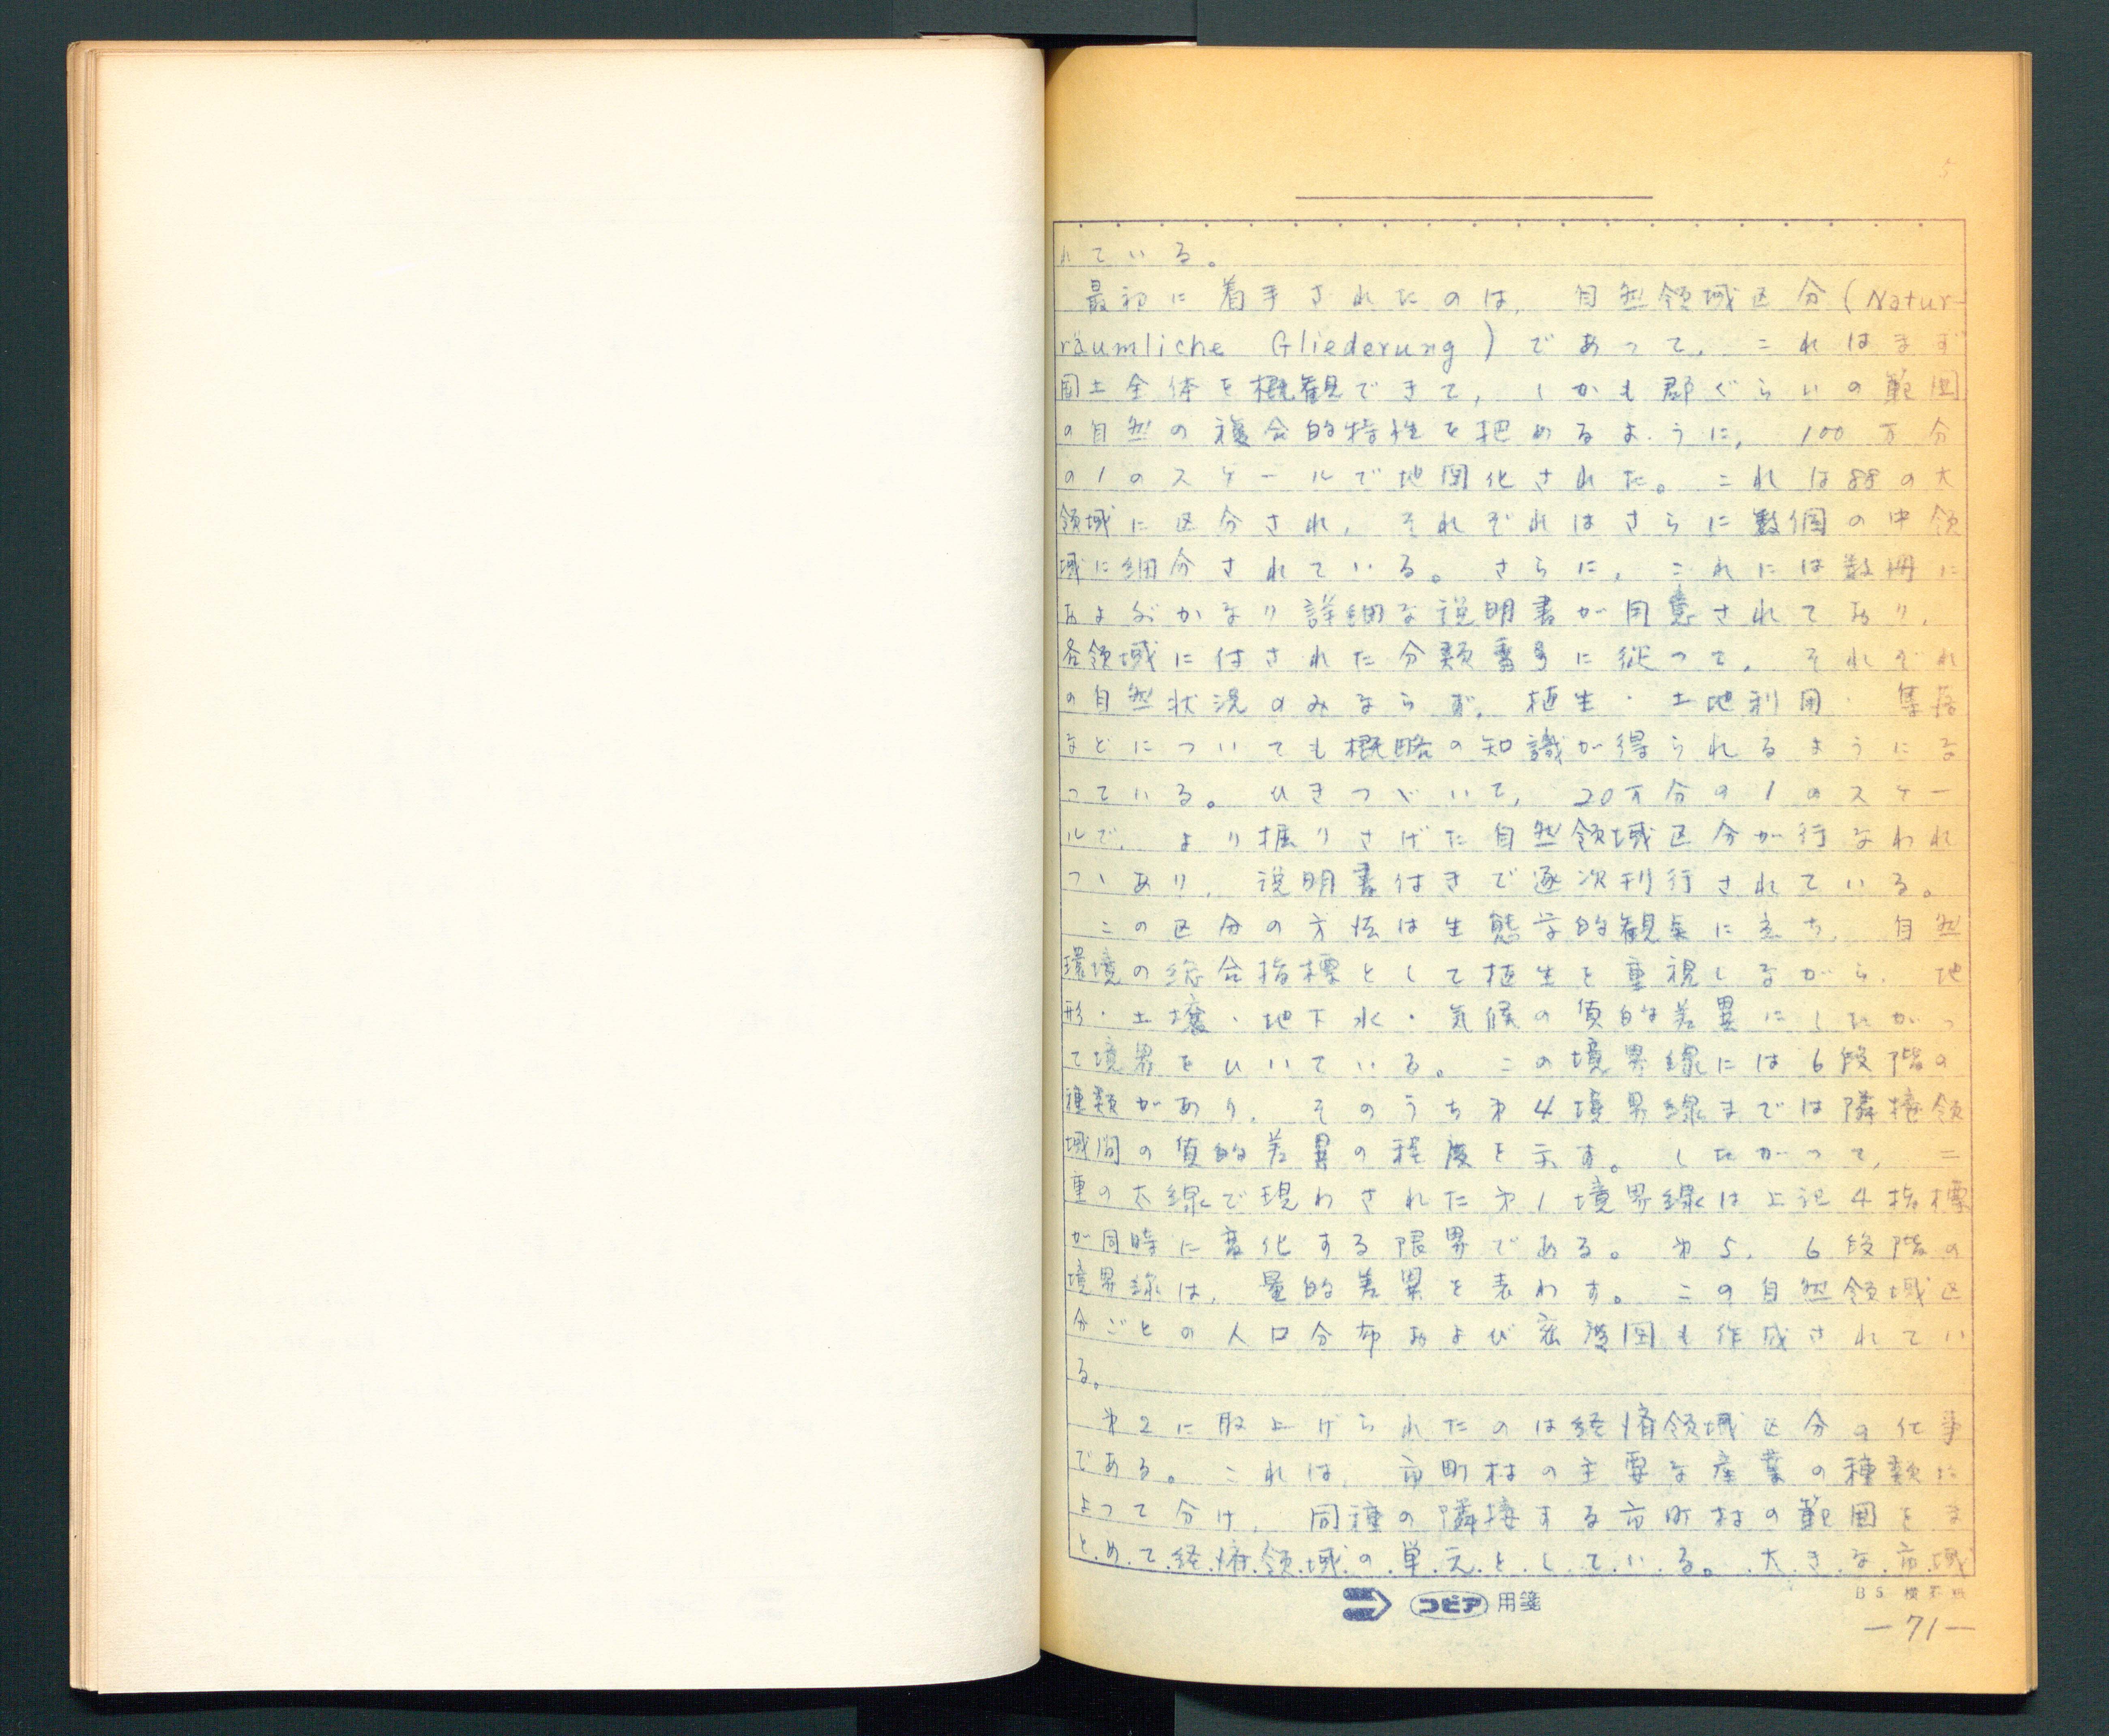 5
れている。
最初に着手されたのは、自然領域区分(Natur-
räumliche Gliederung)であって、これはまず
国土全体を概観できて、しかも郡ぐらいの範囲
の自然の複合的特性を把めるように、100万分
の1のスケールで地図化された。これは88の大
領域に区分され、それぞれはさらに数個の中領
域に細分されている。さらに、これには数冊に
およぶかなり詳細な説明書が用意されており、
各領域に付された分類番号に従って、それぞれ
の自然状況のみならず、植生・土地利用・集落
などについても概略の知識が得られるようにな
っている。ひきつゞいて、20万分の1のスケー
ルで、より掘りさげた自然領域区分が行なわれ
つゝあり、説明書付きで逐次刊行されている。
この区分の方法は生態学的観点に立ち、自然
環境の総合指標として植生を重視しながら、地
形・土壌・地下水・気候の質的差異にしたがっ
て境界をひいている。この境界線には6段階の
種類があり、そのうち才4境界線までは隣接領
域間の質的差異の程度を示す。したがって、二
重の太線で現わされた才1境界線は上記4指標
が同時に変化する限界である。才5、6段階の
境界線は、量的差異を表わす。この自然領域区
分ごとの人口分布および密度図も作成されてい
る。
才2に取上げられたのは経済領域区分の仕事
である。これは、市町村の主要な産業の種類に
よって分け、同種の隣接する市町村の範囲をま
とめて経済領域の単元としている。大きな市域
コピア用箋
B5
—71—